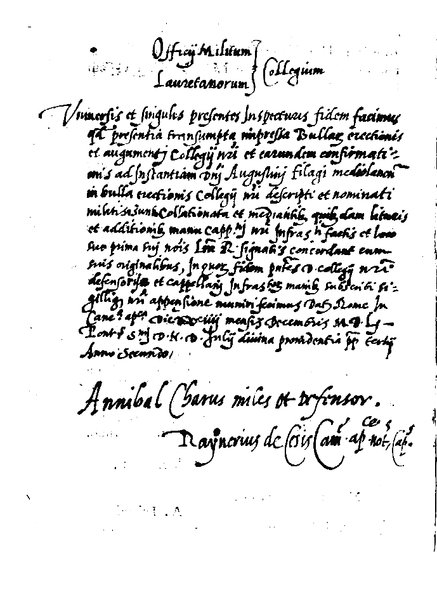 Officij Militum
Lauretanorum } Collegium
Vniuersis et singulis presentes Inspecturis fidem facimus
qđ presentia transumpta impressa Bullaᵣ erectionis
et augumentj Collegij nrj et earundem confirmati-
nis ad Instantiam Dnj Augustinj filagi mediolanen
in bulla erectionis Collegij nrj descripti et nominati
militis sunt Collationata et mediantib, quibusdam literis
et additionib, manu Capp nrj Infras factis et loco
suo prima suj nois R signatis concordant cum
suis originalibus, In quoᵣ fidem pntes D. collegij nrj
defensoris et cappellanj Infras manib, subscriti si-
gillique nrj appensione muniri fecimus Dat Rome In
Canc apᶜᵃ Die xiiij mensis Decembris M.D.Lj
Pont S D. N. D. Julij diuina prouidentia pp tertij
Anno Secundo/
Annibal Charus miles et defensor.
Raynerius de Cesis Cam ap not, Cap